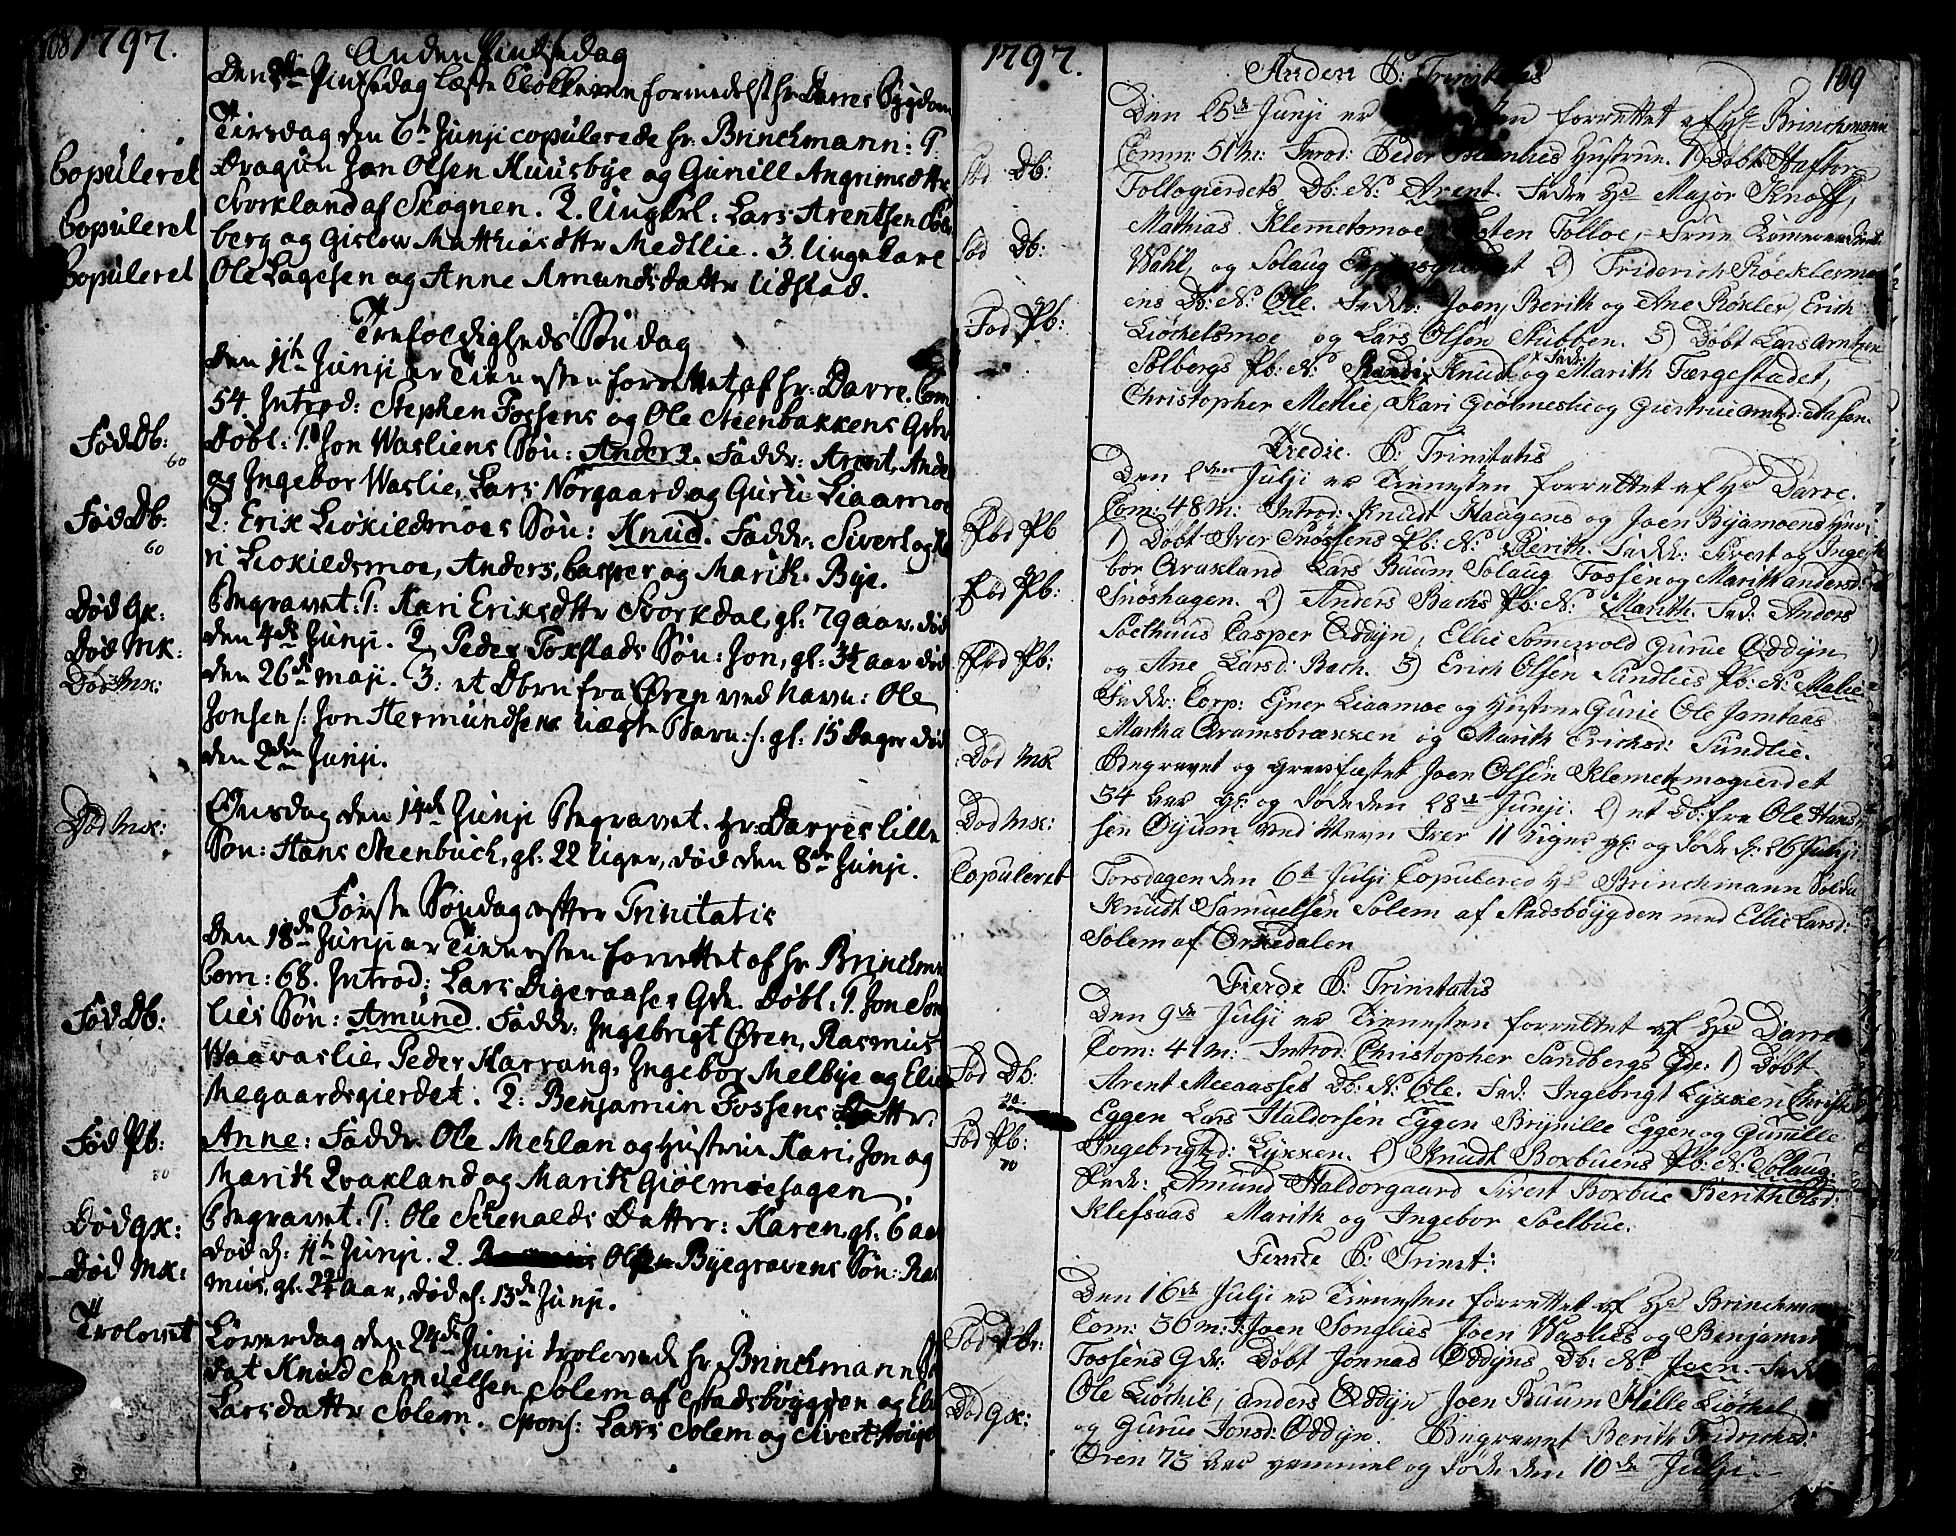 108 1797.
Anden Pintsedag
Den 2den Pintsedag læste Klokkeren formedelst hr Darres Sygdom
Tirsdag den 6th Junji copulerede hr. Brinchmann: 1.
Copuleret
Dragun Jon Olsen Kuusbye og Gunill Angrimsdttr
Svorkland af Skognen. 2. Ungkrl: Lars Arentsen
Copuleret
berg og Gislow Matthiasdttr Medllie. 3. Unge Karl
Copuleret
Ole Lagesen og Anne Amundsdattr Udstad.
Trefoldigheds Søndag
Den 11th Junji er Tienesten forrettet af hr. Darre. Com
54. Introd: Stephen Fossens og Ole Steenbakkens Qvin
Fød Db:
60
Døbt: 1. Jon Wasliens Søn: Anders. Faddr: Arent, Ande
og Ingebor Waslie, Lars Norgaard og Guru Liaamoe
Fød Db:
60
2. Erik Liøkiedmoes Søn: Knud. Faddr: Sivert og
ri Liøkiedsmoe, Anders, Casper og Marith Bye.
Død GK:
Begravet: 1. Kari Eriksdttr Svorkdal, gl: 79 aar, død
Død MK:
den 4de Junji. 2. Peder Foxstads Søn: Jon, gl: 3½ aar død
Død MK:
den 26de maji. 3. et Dbrn fra Øren ved navn: Ole
Jonsen /: Jon Hermundsens uægte Barn :/ gl: 15 Dager død
den 2den Junji.
Død MK:
Onsdag den 14de Junji Begravet. hr. Darres lille
Søn: Hans Steenbuch, gl: 22 uger, død den 8de Junji.
Første Søndag efter Trinitatis
Den 18de Junji er Tienesten forrettet af hr Brinchm
Com: 68. Introd: Lars Digeraases Qde. Døbt: 1. Jon Son
Fød Db:
lies Søn: Amund. Faddr: Ingebrigt Øren, Rasmus
Waavaslie, Peder Harrang, Ingebor Melbye og Eli
Megaardsgierdet. 2. Benjamin Fossens Dattr:
Fød Pb:
80
Anne: Faddr. Ole Mehlan og Hustrue Kari, Jon og
Marith Qvakland og Marith Giølmeshagen.
Død GK:
Begravet: 1. Ole Schenalds Datter: Karen, gl: 6 aar
Død MK:
død d: 11th Junji. 2. Olsen Byegravens Søn: Ras
mus, gl: 2½ aar, død d: 13de Junji.
Trolovet
Løverdag den 24de Junji trolovede hr. Brinchmann
dat Knud Samuelsen Solem af Stadsbøygden og Eli
Larsdattr Solem. Spons: Lars Solem og Sivert
1797.
109
Anden S: Trinitatis
Den 25de Junji er forrettet af Hr Brinchmann
Fød Db:
Comm: 51 M: Introd: Peder Hustrue. 1) Døbt Haftor
Tollogierdets Db: N: Arent. Fadr Hr Major Knoff,
Mathias Klemetsmoe, Esten Tolloe, Frue
Fød Db:
Wahl, og Solaug 2) Friderich Røcklesmo
ens Db: N: Ole. Faddr: Joen, Berith og Ane Røkler, Erich
Fød Pb:
Liøchelsmoe og Lars Olsen Stubben. 3) Døbt Lars Arntzen
Solbergs Pb: N: Randi, Fadr: Knud og Marith Færgestadet,
Christopher Metlie, Kari Giølmeslie og Giertrue
Tredie S: Trinitatis
Den 2den Julji er Tienesten forrettet af Hr Darre.
Com: 48 M: Introd: Knudt Haugens og Joen Byamoens
Fød Pb
1) Døbt Iver Snøsens Pb: N: Berith. Faddr: Sivert og Inge
bor Qvakland Lars Buum Solaug Fossen og Marith Andersd:
Fød Pb:
Snøshagen. 2) Anders Bachs Pb: N: Marith. Fad: Anders
Soethuus Casper Oddyn, Ellie Somervold Gurue Oddyn
Fød Pb:
og Ane Larsd: Bach. 3) Erich Olsen Sundlies Pb: N: Malie
Faddr: Corp: Ejner Liaamoe og Hustrue Gurie Ole Jamtaas
Martha Gramsbraxxen og Marith Erichsd: Sundlie.
Død MK
Begravet og Gravfæstet Joen Olsen Klemetzmogierdet
34 Aar gl: og døde den 28de Junji. 2) et Db: fra Ole Hans
Død MK:
sen Øyum ved Navn Iver 11 uger gl: og døde d: 26 Junji
Copuleret
Torsdagen den 6th Julji Copulered Hr Brinchmann Solda
Knudt Samuelsen Solem af Stadsbøygden med Ellie Larsd:
Solem af Orkedalen
Fierde S: Trinitatis
Den 9de Julji er Tienesten forrettet af Hr Darre
Com: 41 M: Introd: Christopher Sandbergs Qde: 1) Døbt
Fød Db:
Arent Meeaasset Db: N: Ole. Fad: Ingebrigt Lykken Christ
Eggen Lars Haldorsen Eggen Brynille Eggen og Gunille
Fød Pb:
70
Ingebrigtsd: Lykken. 2) Knudt Boxbuens Pb: N: Solaug.
Fadr: Amund Haldorgaard Sivert Boxbue Berith Olsd:
Klefsaas Marith og Ingebor Soelbue.
Femte S: Trinit:
Den 16de Julji er Tienesten forrettet af Hr Brinchm
Com: 36 M: I: Joen Songlies Joen Waslies og Benjamin
Fossens Qdr: Døbt Jonnas Oddyns Db: N: Joen. Fadr
Ole Liøchel, Anders Oddyn Joen Buum Helle Liøchel
Død GK:
og Gurue Jonsd: Oddyn. Begravet Berith Fridrichsd:
Øren 73 Aar gammel og døde den 10de Julji.